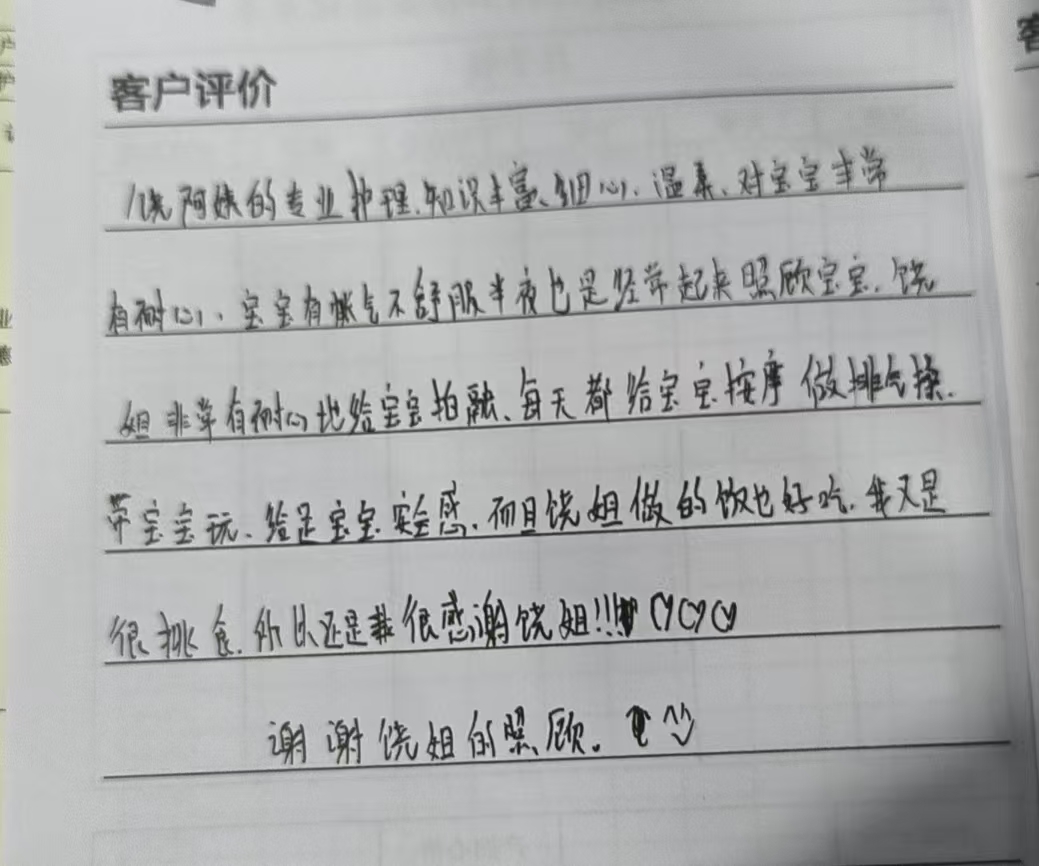 客户评价
饶阿姨的专业护理知识丰富、细心、温柔、对宝宝非常
有耐心、宝宝有胀气不舒服半夜也是经常起来照顾宝宝、饶
姐非常有耐心地给宝宝拍嗝、每天都给宝宝按摩做排气操、
带宝宝玩、给足宝宝安全感、而且饶姐做的饭也好吃、我又是
很挑食、所以还是很感谢饶姐!!!
谢谢饶姐的照顾。